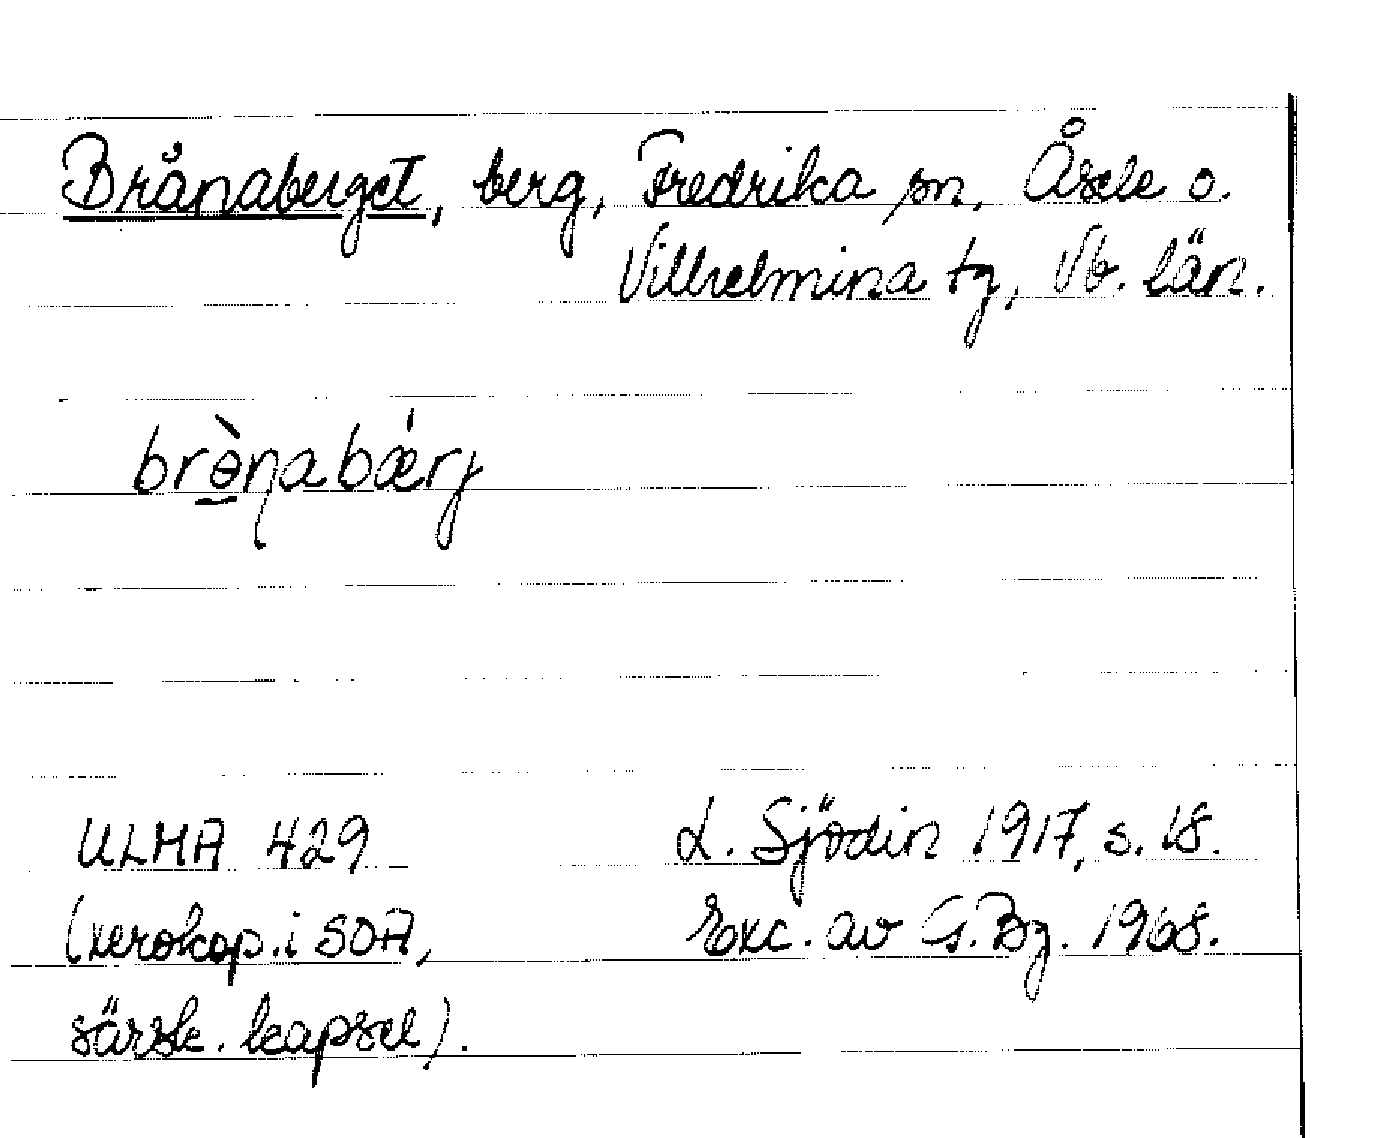 Brånaberget, berg, Fredrika sn, Åsele o.
Vilhelmina tg, Vb. län.
brə̱̀ŋabǽrj
ULMA 429
L. Sjödin 1917, s. 18.
(xerokop. i SOA,
Exc. av G. Bg. 1968.
särsk. kapsel).